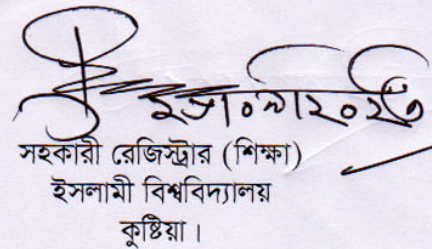 সহকারী রেজিস্ট্রার (শিক্ষা)
ইসলামী বিশ্ববিদ্যালয়
কুষ্টিয়া।